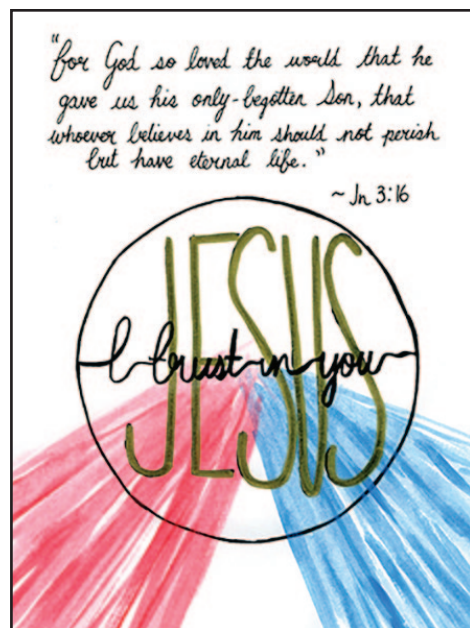 "for God so loved the world that he
gave us his only-begotten Son, that
whoever believes in him should not perish
but have eternal life."
~ Jn 3:16
JESUS
I trust in you